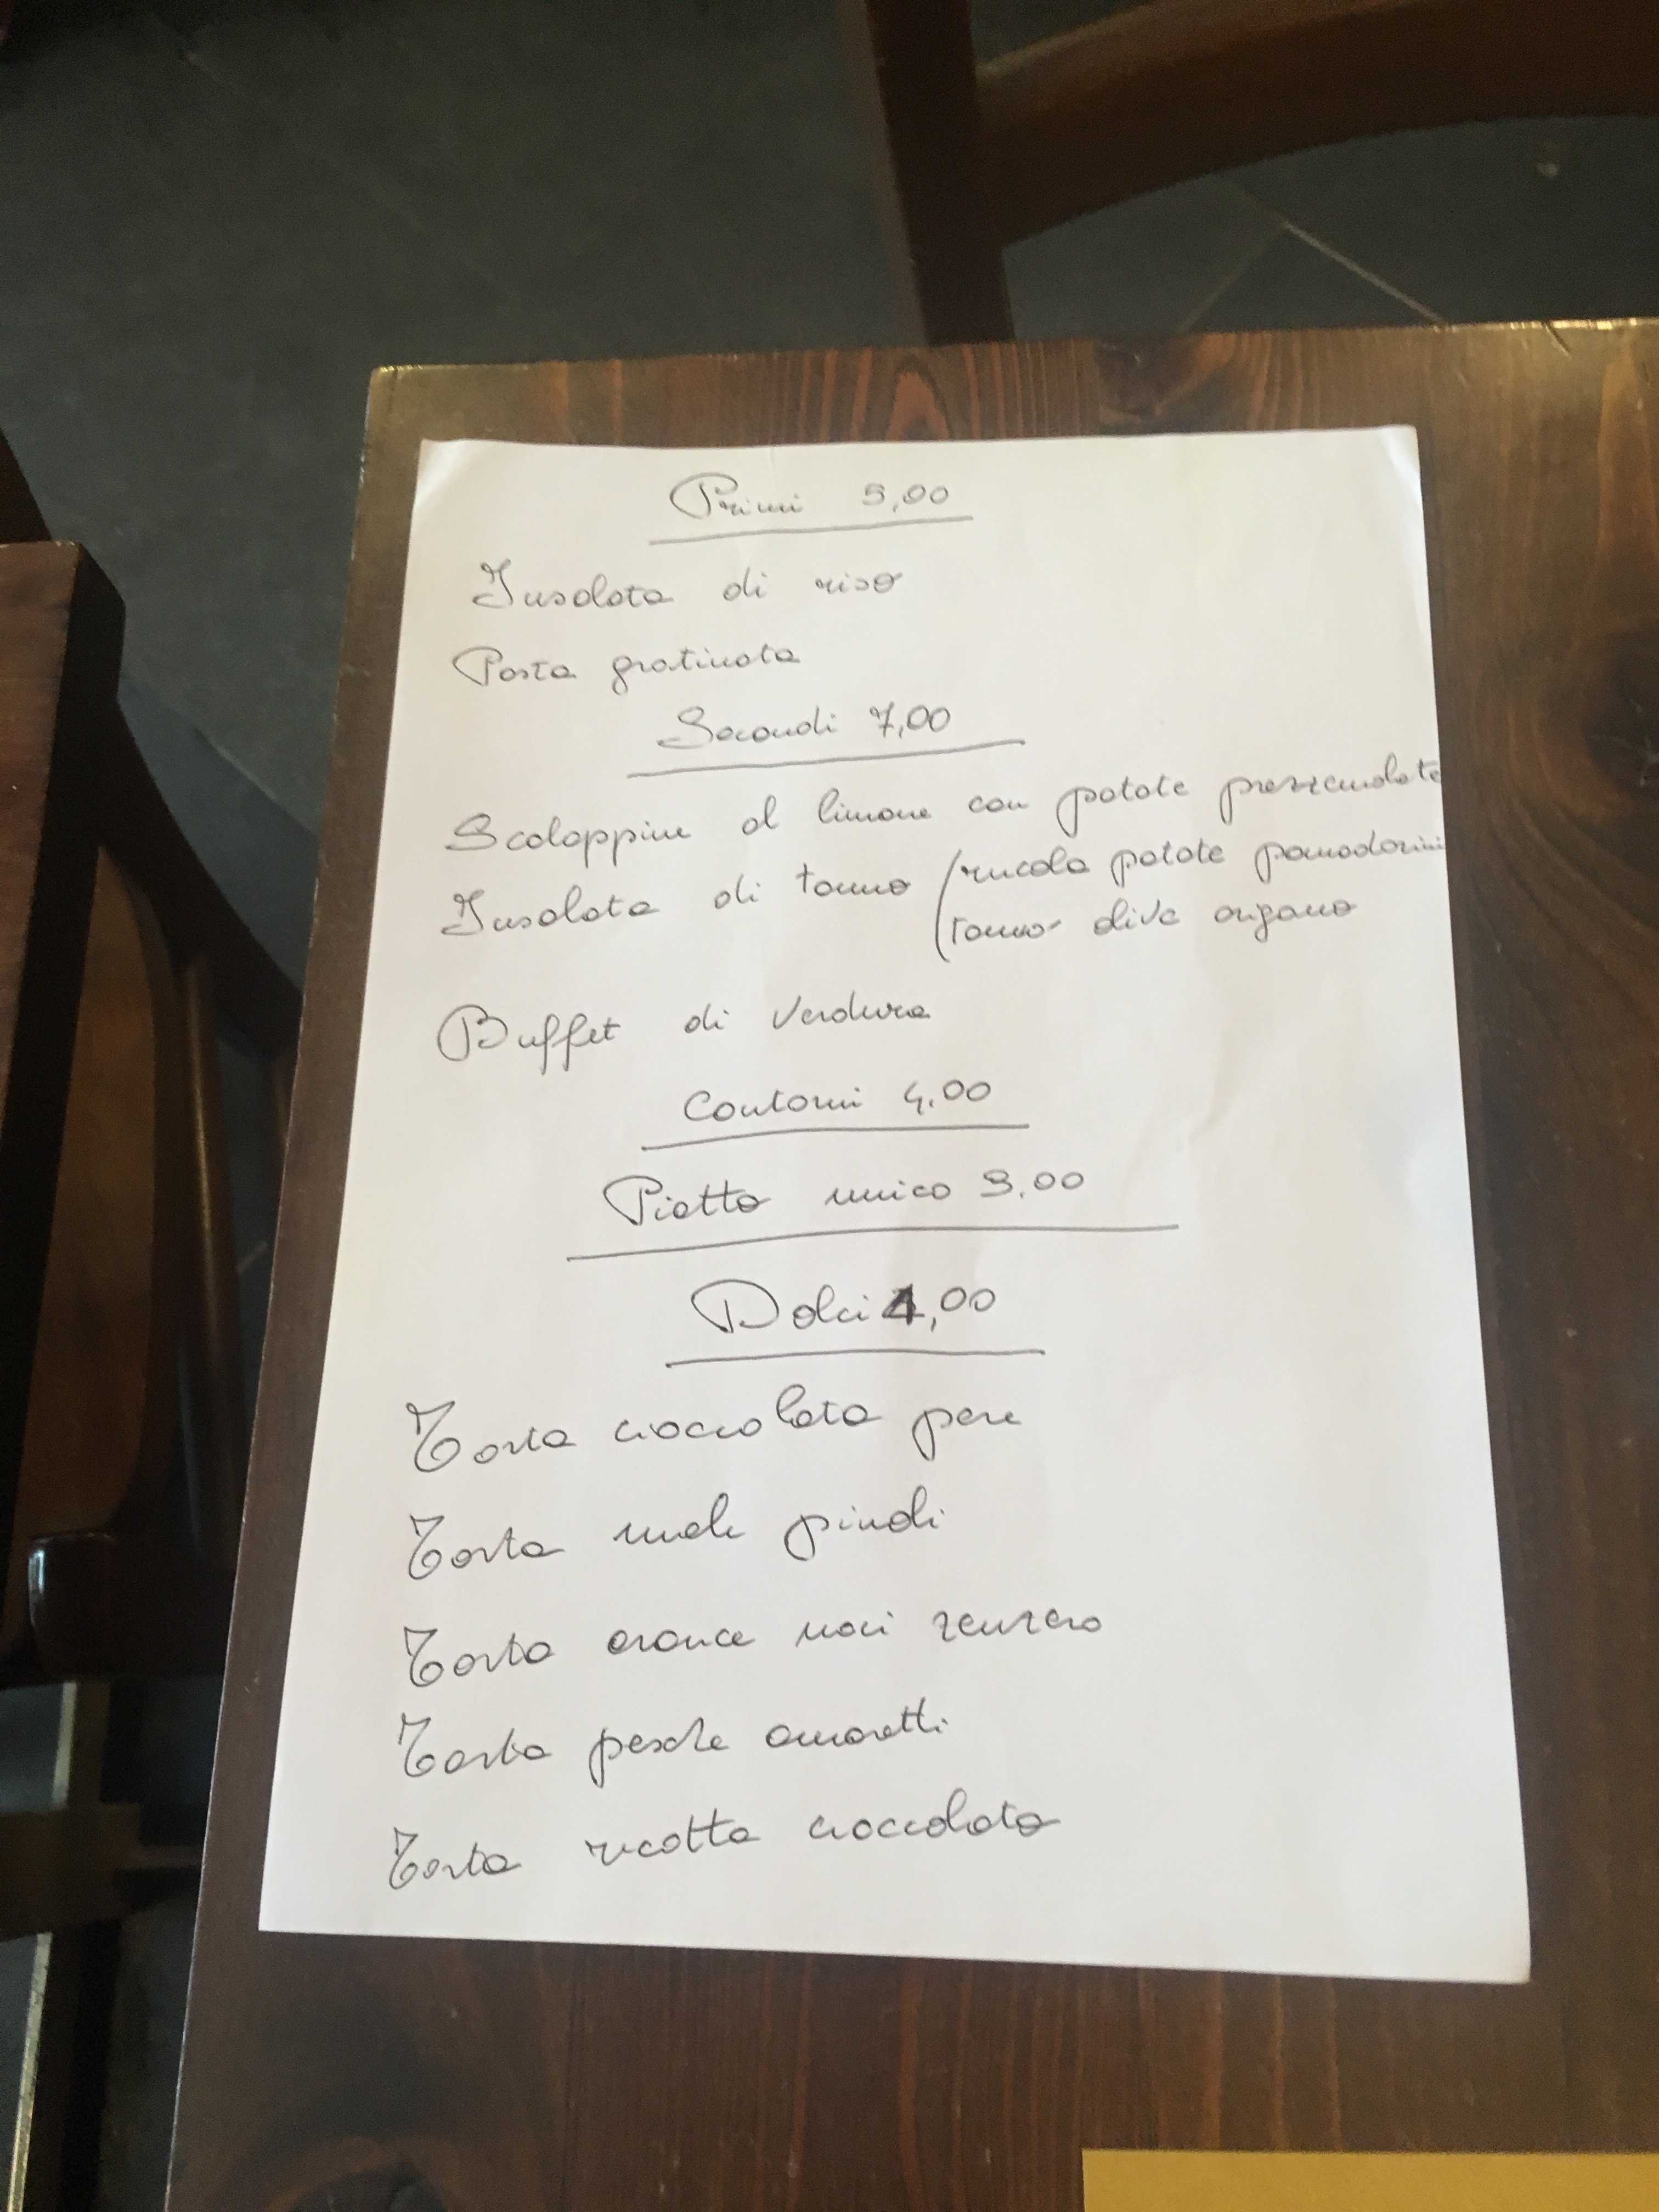 Primi 5,00
Insalata di riso
Pasta gratinata
Secondi 7,00
Scaloppine al limone con patate prezzemolate
Insalata di tonno (rucola patate pomodorini
tonno olive origano
Buffet di verdura
Contorni 4,00
Piatto unico 9,00
Dolci 4,00
Torta cioccolata pere
Torta mele pinoli
Torta arance noci zenzero
Torta pesche amaretti
Torta ricotta cioccolato